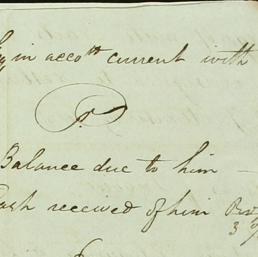 in acco^ts current with
Balance due to him —
Cash received of him